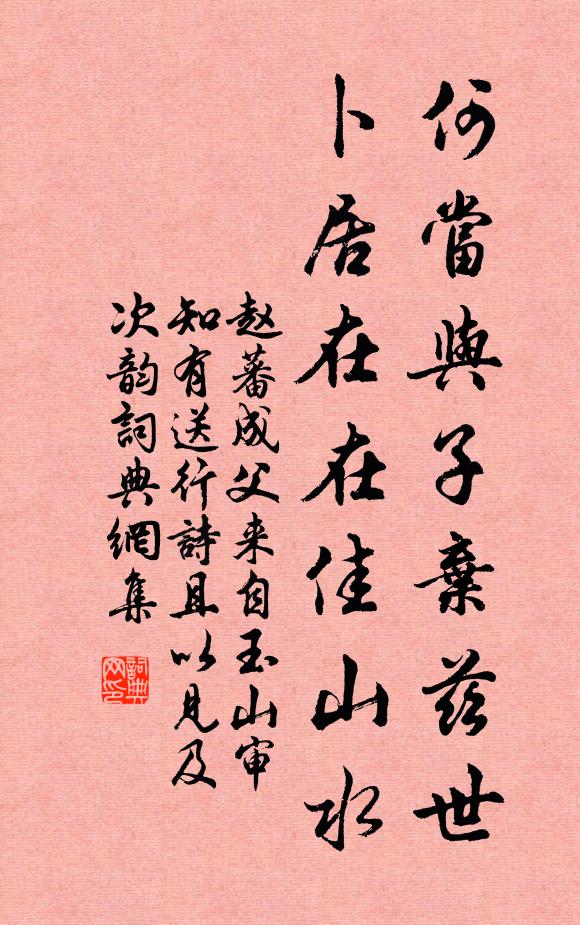 何當與子棄茲世
卜居在在佳山水
赵蕃成父来自玉山审
知有送行詩且以見及
次韵詞典網集
詞典网印